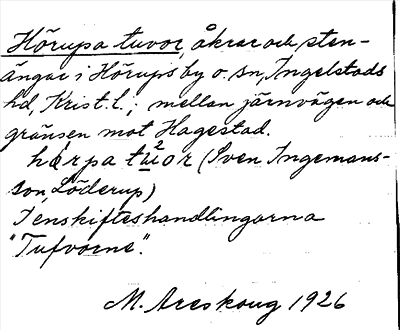 Hörupa tuvor, åkrar och sten-
ängar i Hörups by o. sn, Ingelstads
hd, Krist. l.; mellan järnvägen och
gränsen mot Hagestad.
hørpa tu²or (Sven Ingemans-
son, Löderup)
I enskifteshandlingarna
"Tufvorne".
M. Areskoug 1926